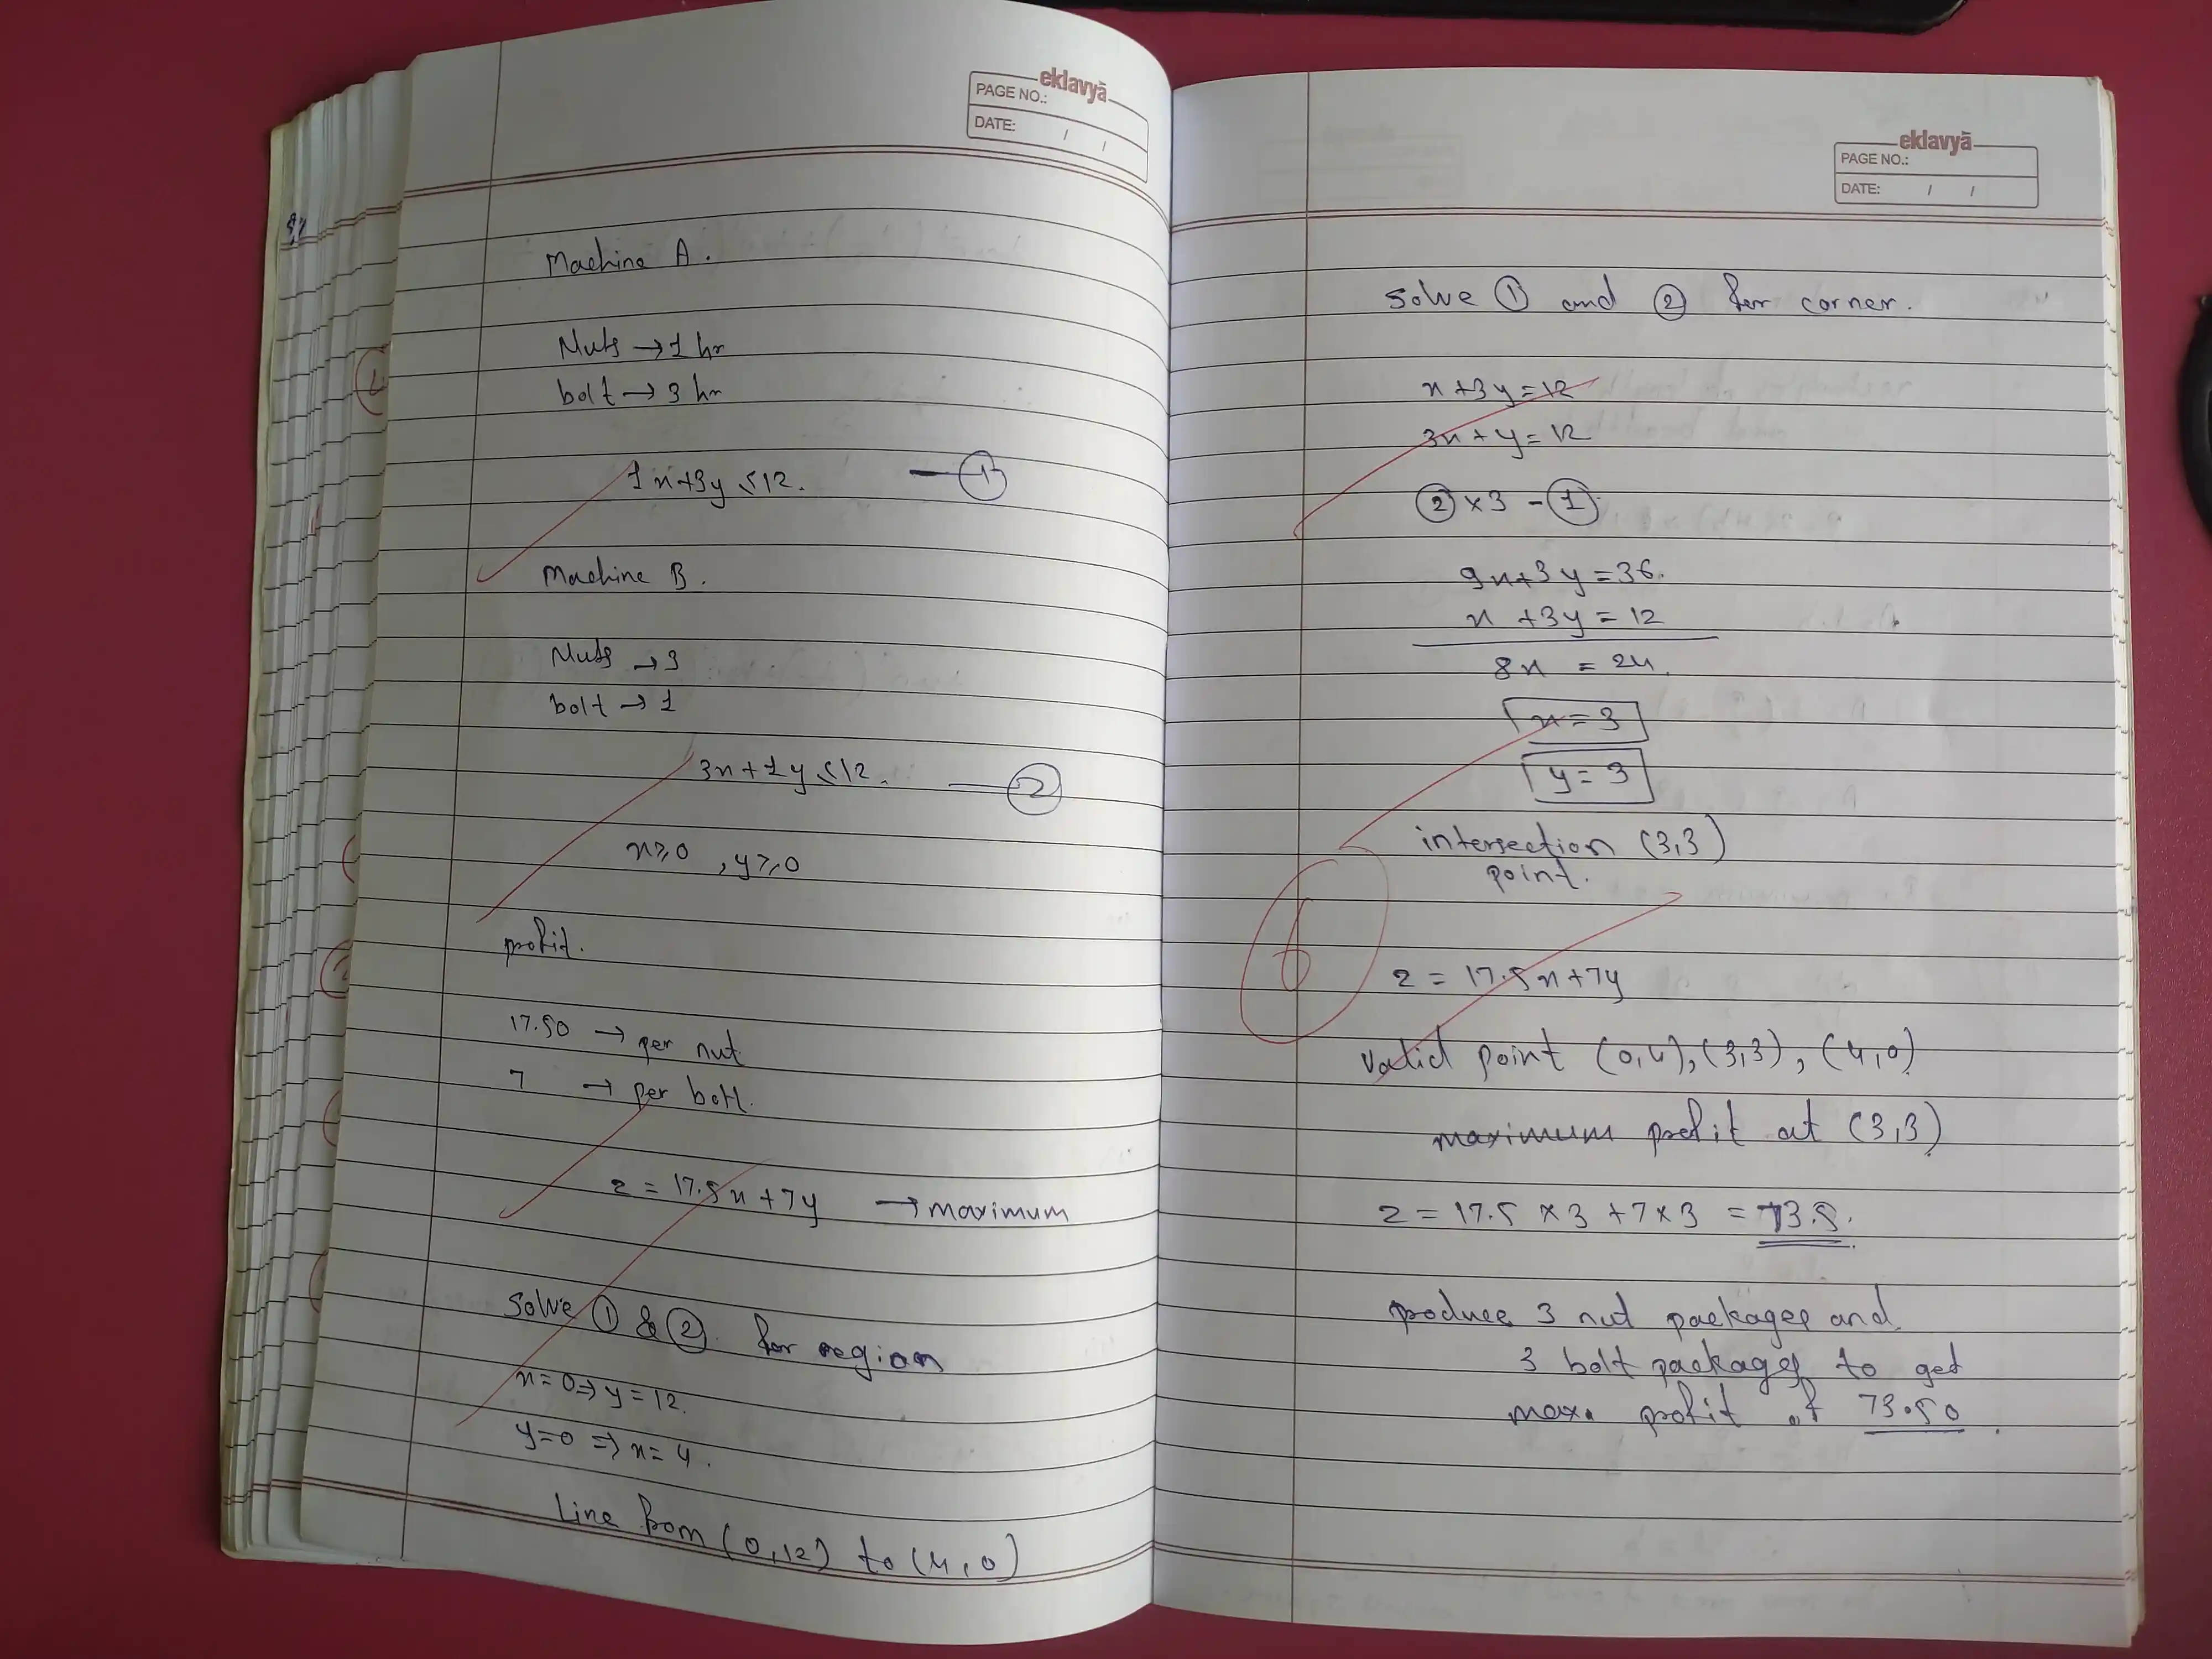 eklavyā
PAGE NO.:
DATE: / /
Machine A.
Nuts → 1 hr
bolt → 3 hr
1x+3y ≤ 12. — ①
Machine B.
Nuts → 3
bolt → 1
3x+1y ≤ 12. — ②
x ≥ 0 , y ≥ 0
profit.
17.50 → per nut
7 → per bolt.
z = 17.5x+7y → maximum
Solve ① & ② for region
x=0 ⇒ y=12.
y=0 ⇒ x=4.
Line from (0,12) to (4,0)
eklavyā
PAGE NO.:
DATE: / /
Solve ① and ② for corner.
x+3y=12
3x+y=12
② ×3 - ①
9x+3y=36.
x +3y=12
8x = 24.
x=3
y=3
intersection (3,3)
point.
6
z = 17.5x+7y
valid point (0,4), (3,3), (4,0)
maximum profit at (3,3)
z = 17.5 ×3 +7×3 = 73.5.
produce 3 nut packages and
3 bolt packages to get
max. profit of 73.50.